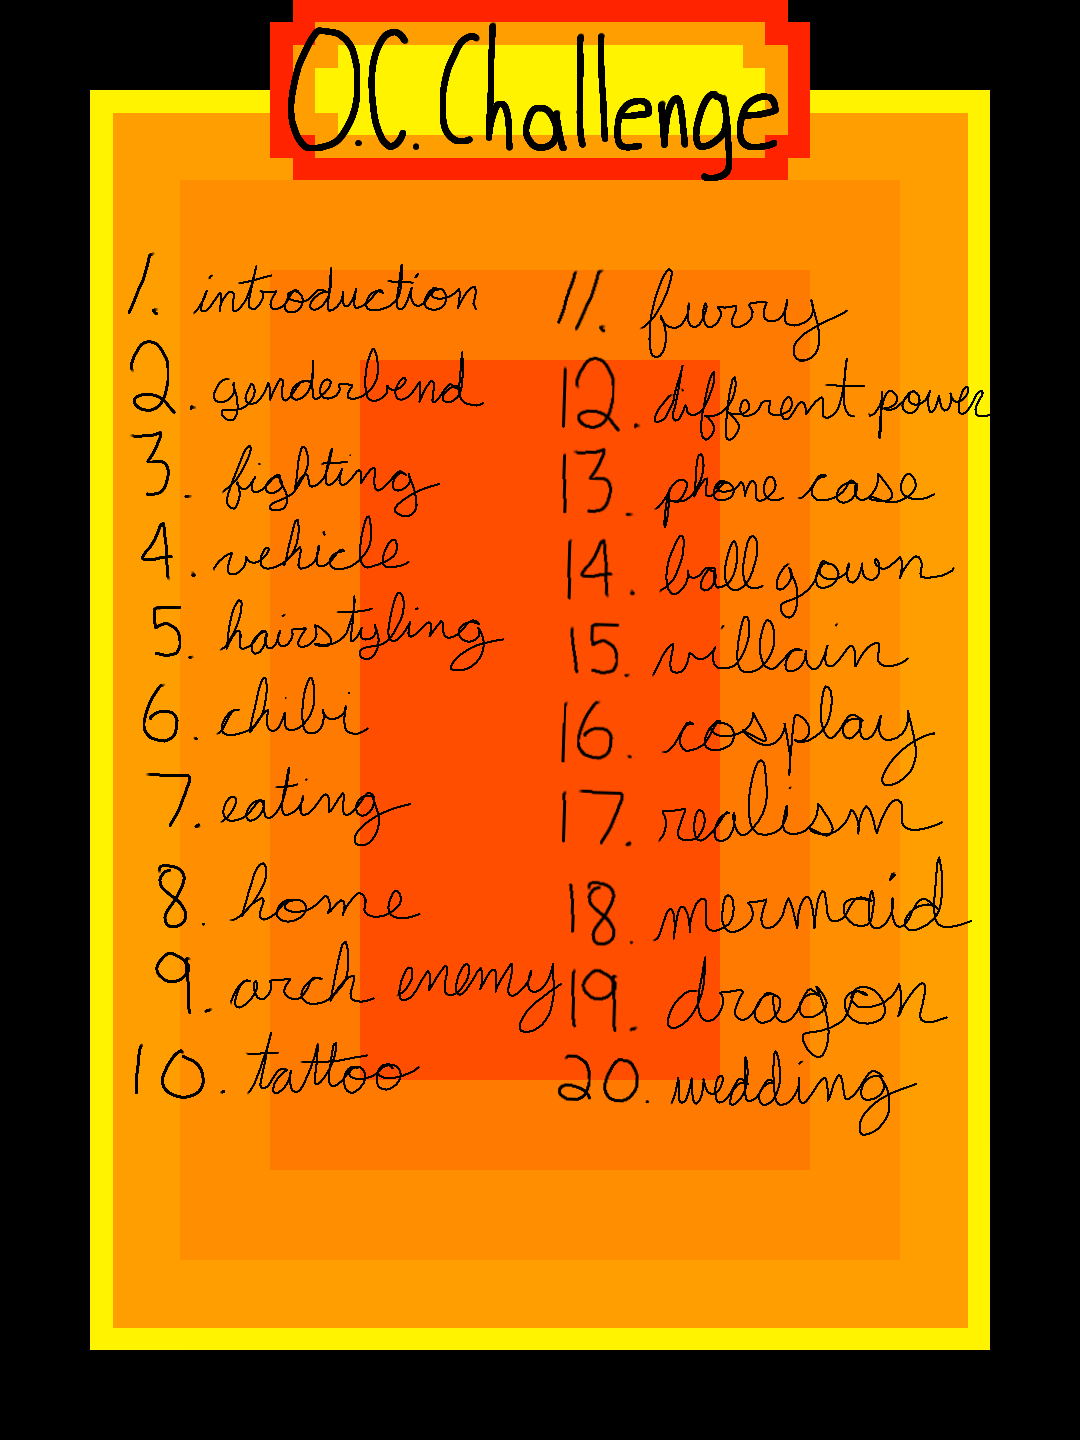 O.C. Challenge
1. introduction
2. genderbend
3. fighting
4. vehicle
5. hairstyling
6. chibi
7. eating
8. home
9. arch enemy
10. tattoo
11. furry
12. different power
13. phone case
14. ball gown
15. villain
16. cosplay
17. realism
18. mermaid
19. dragon
20. wedding